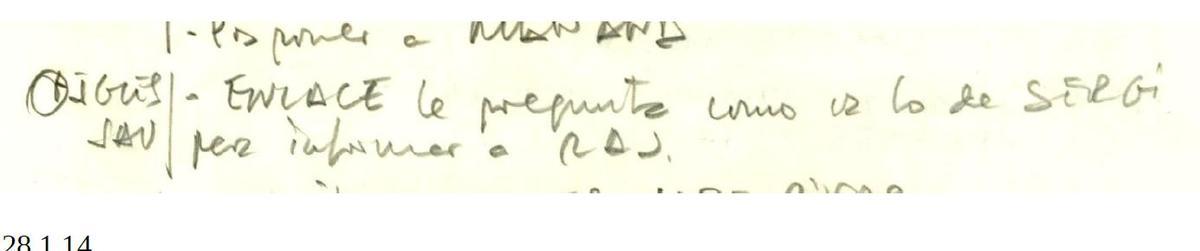 - Posponer a MAÑANA
JGUS SAU - ENLACE le pregunta como va lo de SERGi
para informar a RAJ.
28.1.14